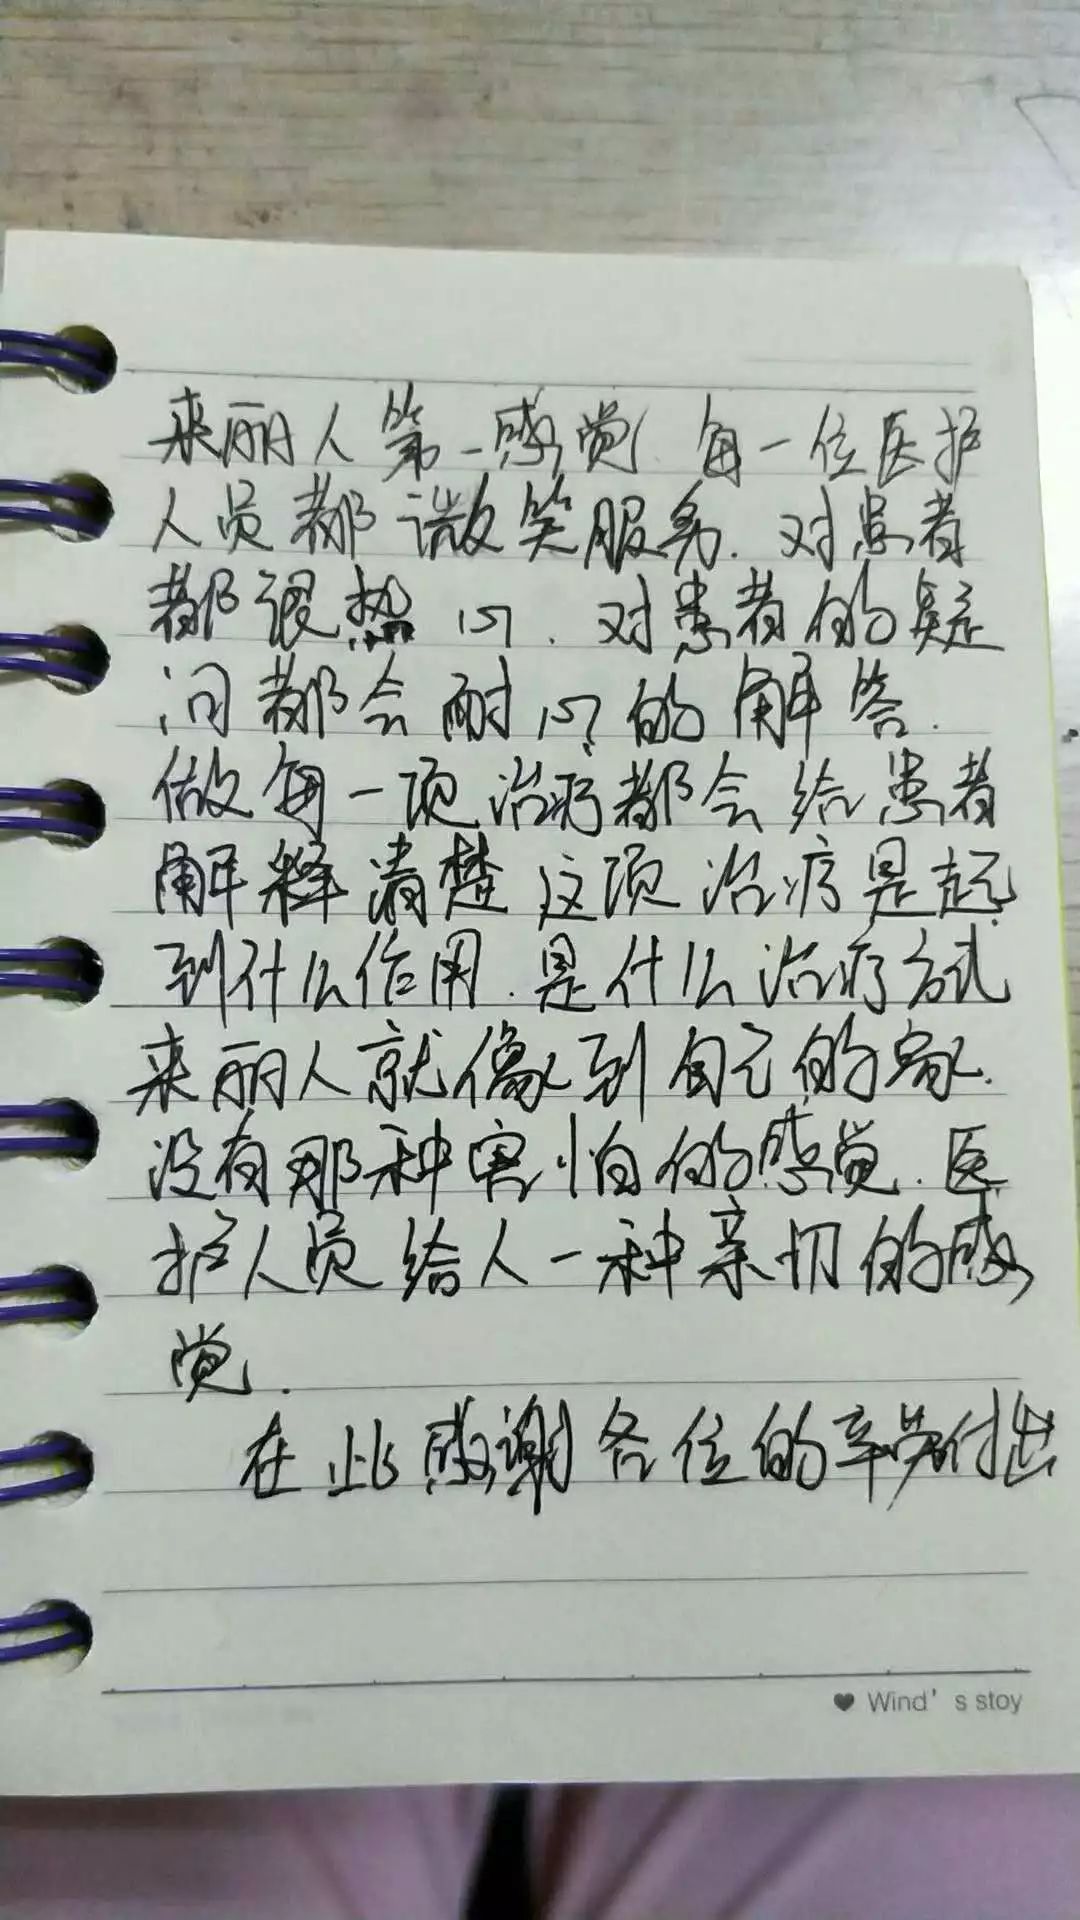 来丽人第一感觉 每一位医护
人员都微笑服务.对患者
都很热心.对患者的疑
问都会耐心的解答.
做每一项治疗都会给患者
解释清楚这项治疗是起
到什么作用.是什么治疗方式
来丽人就像到自己的家.
没有那种害怕的感觉.医
护人员给人一种亲切的感
觉.
在此感谢各位的辛劳付出
♥ Wind's stoy